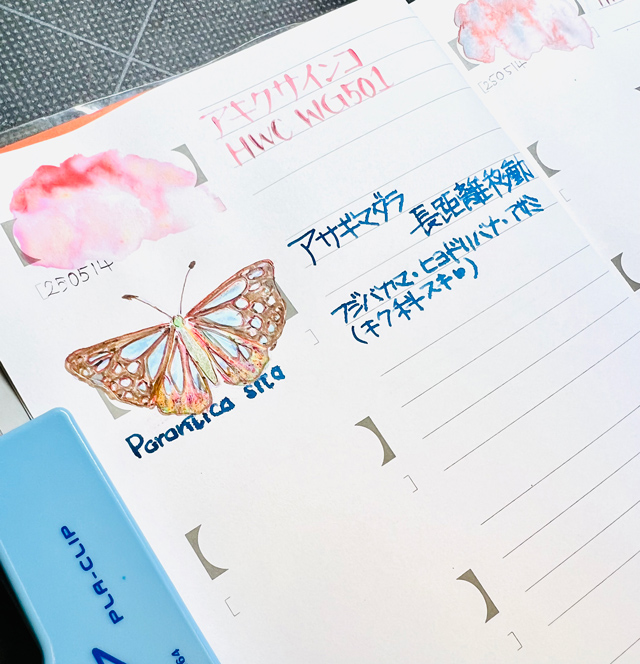 アキクサインコ
HWC WG501
[250514
[250514
アサギマダラ 長距離移動
フジバカマ・ヒヨドリバナ・アザミ
(キク科スキ♥)
Parantica sita
PLA-CLIP
64